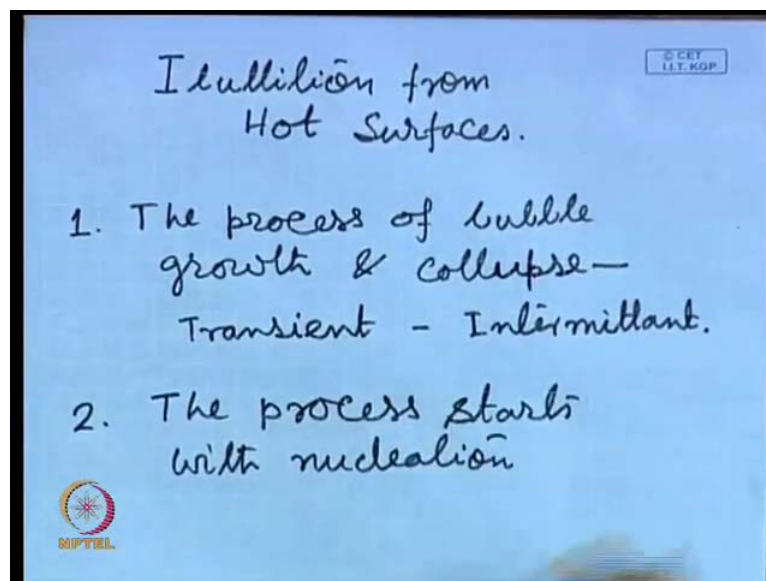 Ebullition from
Hot Surfaces.
© CET
I.I.T. KGP
1. The process of bubble
growth & collapse—
Transient - Intermittant.
2. The process starts
with nucleation
NPTEL